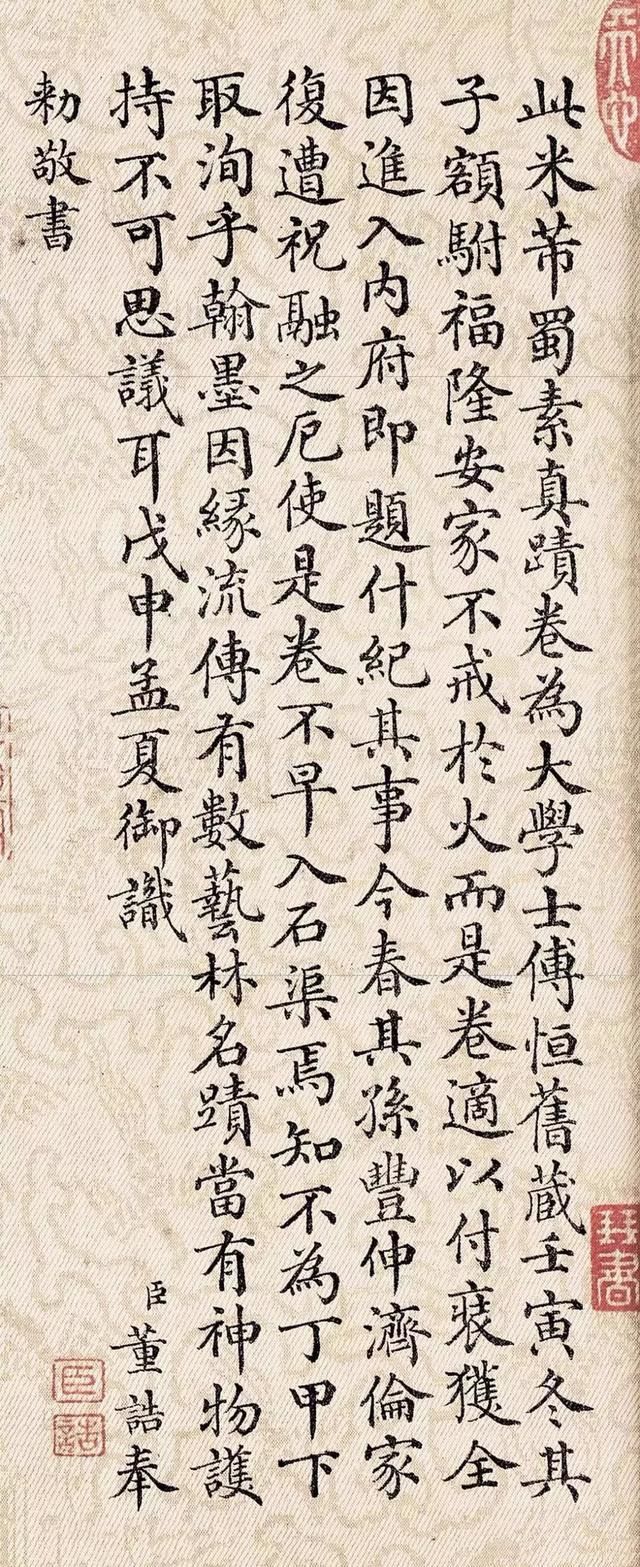 此米芾蜀素真蹟卷為大學士傅恒舊蔵壬寅冬其
子額駙福隆安家不戒於火而是卷適以付裝獲全
因進入内府即題什紀其事今春其孫豐伸濟倫家
復遭祝融之厄使是卷不早入石渠焉知不為丁甲下
取洵乎翰墨因緣流傳有數藝林名蹟當有神物護
持不可思議耳戊申孟夏御識
臣董誥奉
勑敬書
臣
誥
琴書